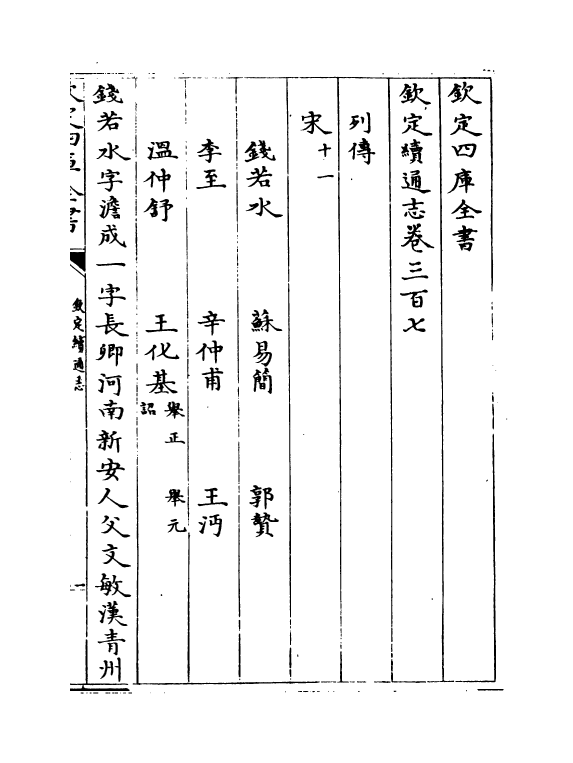 欽定四庫全書
欽定續通志卷三百七
列傳
宋十一
錢若水 蘇易簡 郭贄
李至 辛仲甫 王沔
溫仲舒 王化基 舉正 舉元 詔
錢若水字澹成一字長卿河南新安人父文敏漢青州
欽定四庫全書
欽定續通志
一